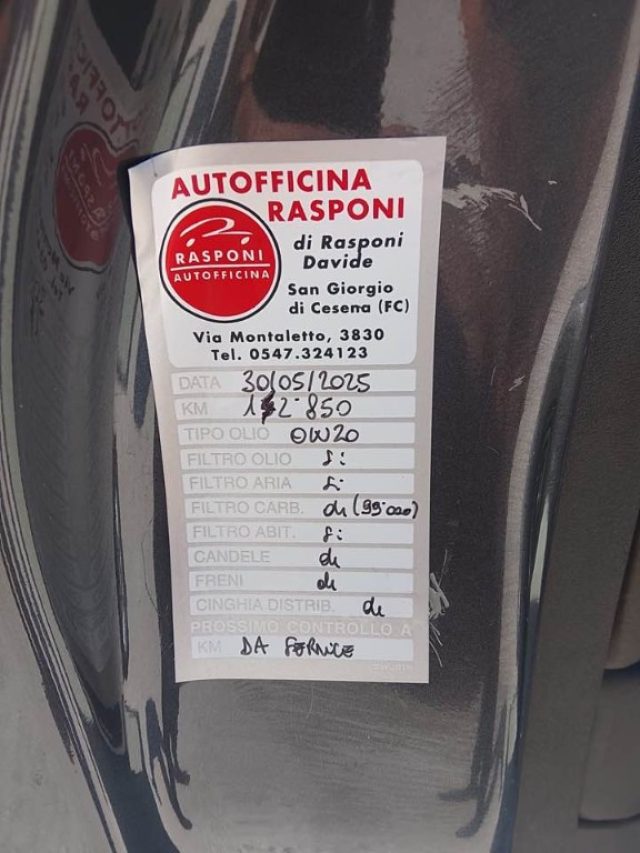 AUTOFFICINA
RASPONI
RASPONI
AUTOFFICINA
di Rasponi
Davide
San Giorgio
di Cesena (FC)
Via Montaletto, 3830
Tel. 0547.324123
DATA 30/05/2025
KM 152·850
TIPO OLIO 0W20
FILTRO OLIO si
FILTRO ARIA si
FILTRO CARB. (99·000)
FILTRO ABIT. si
CANDELE
FRENI
CINGHIA DISTRIB.
PROSSIMO CONTROLLO A
KM DA